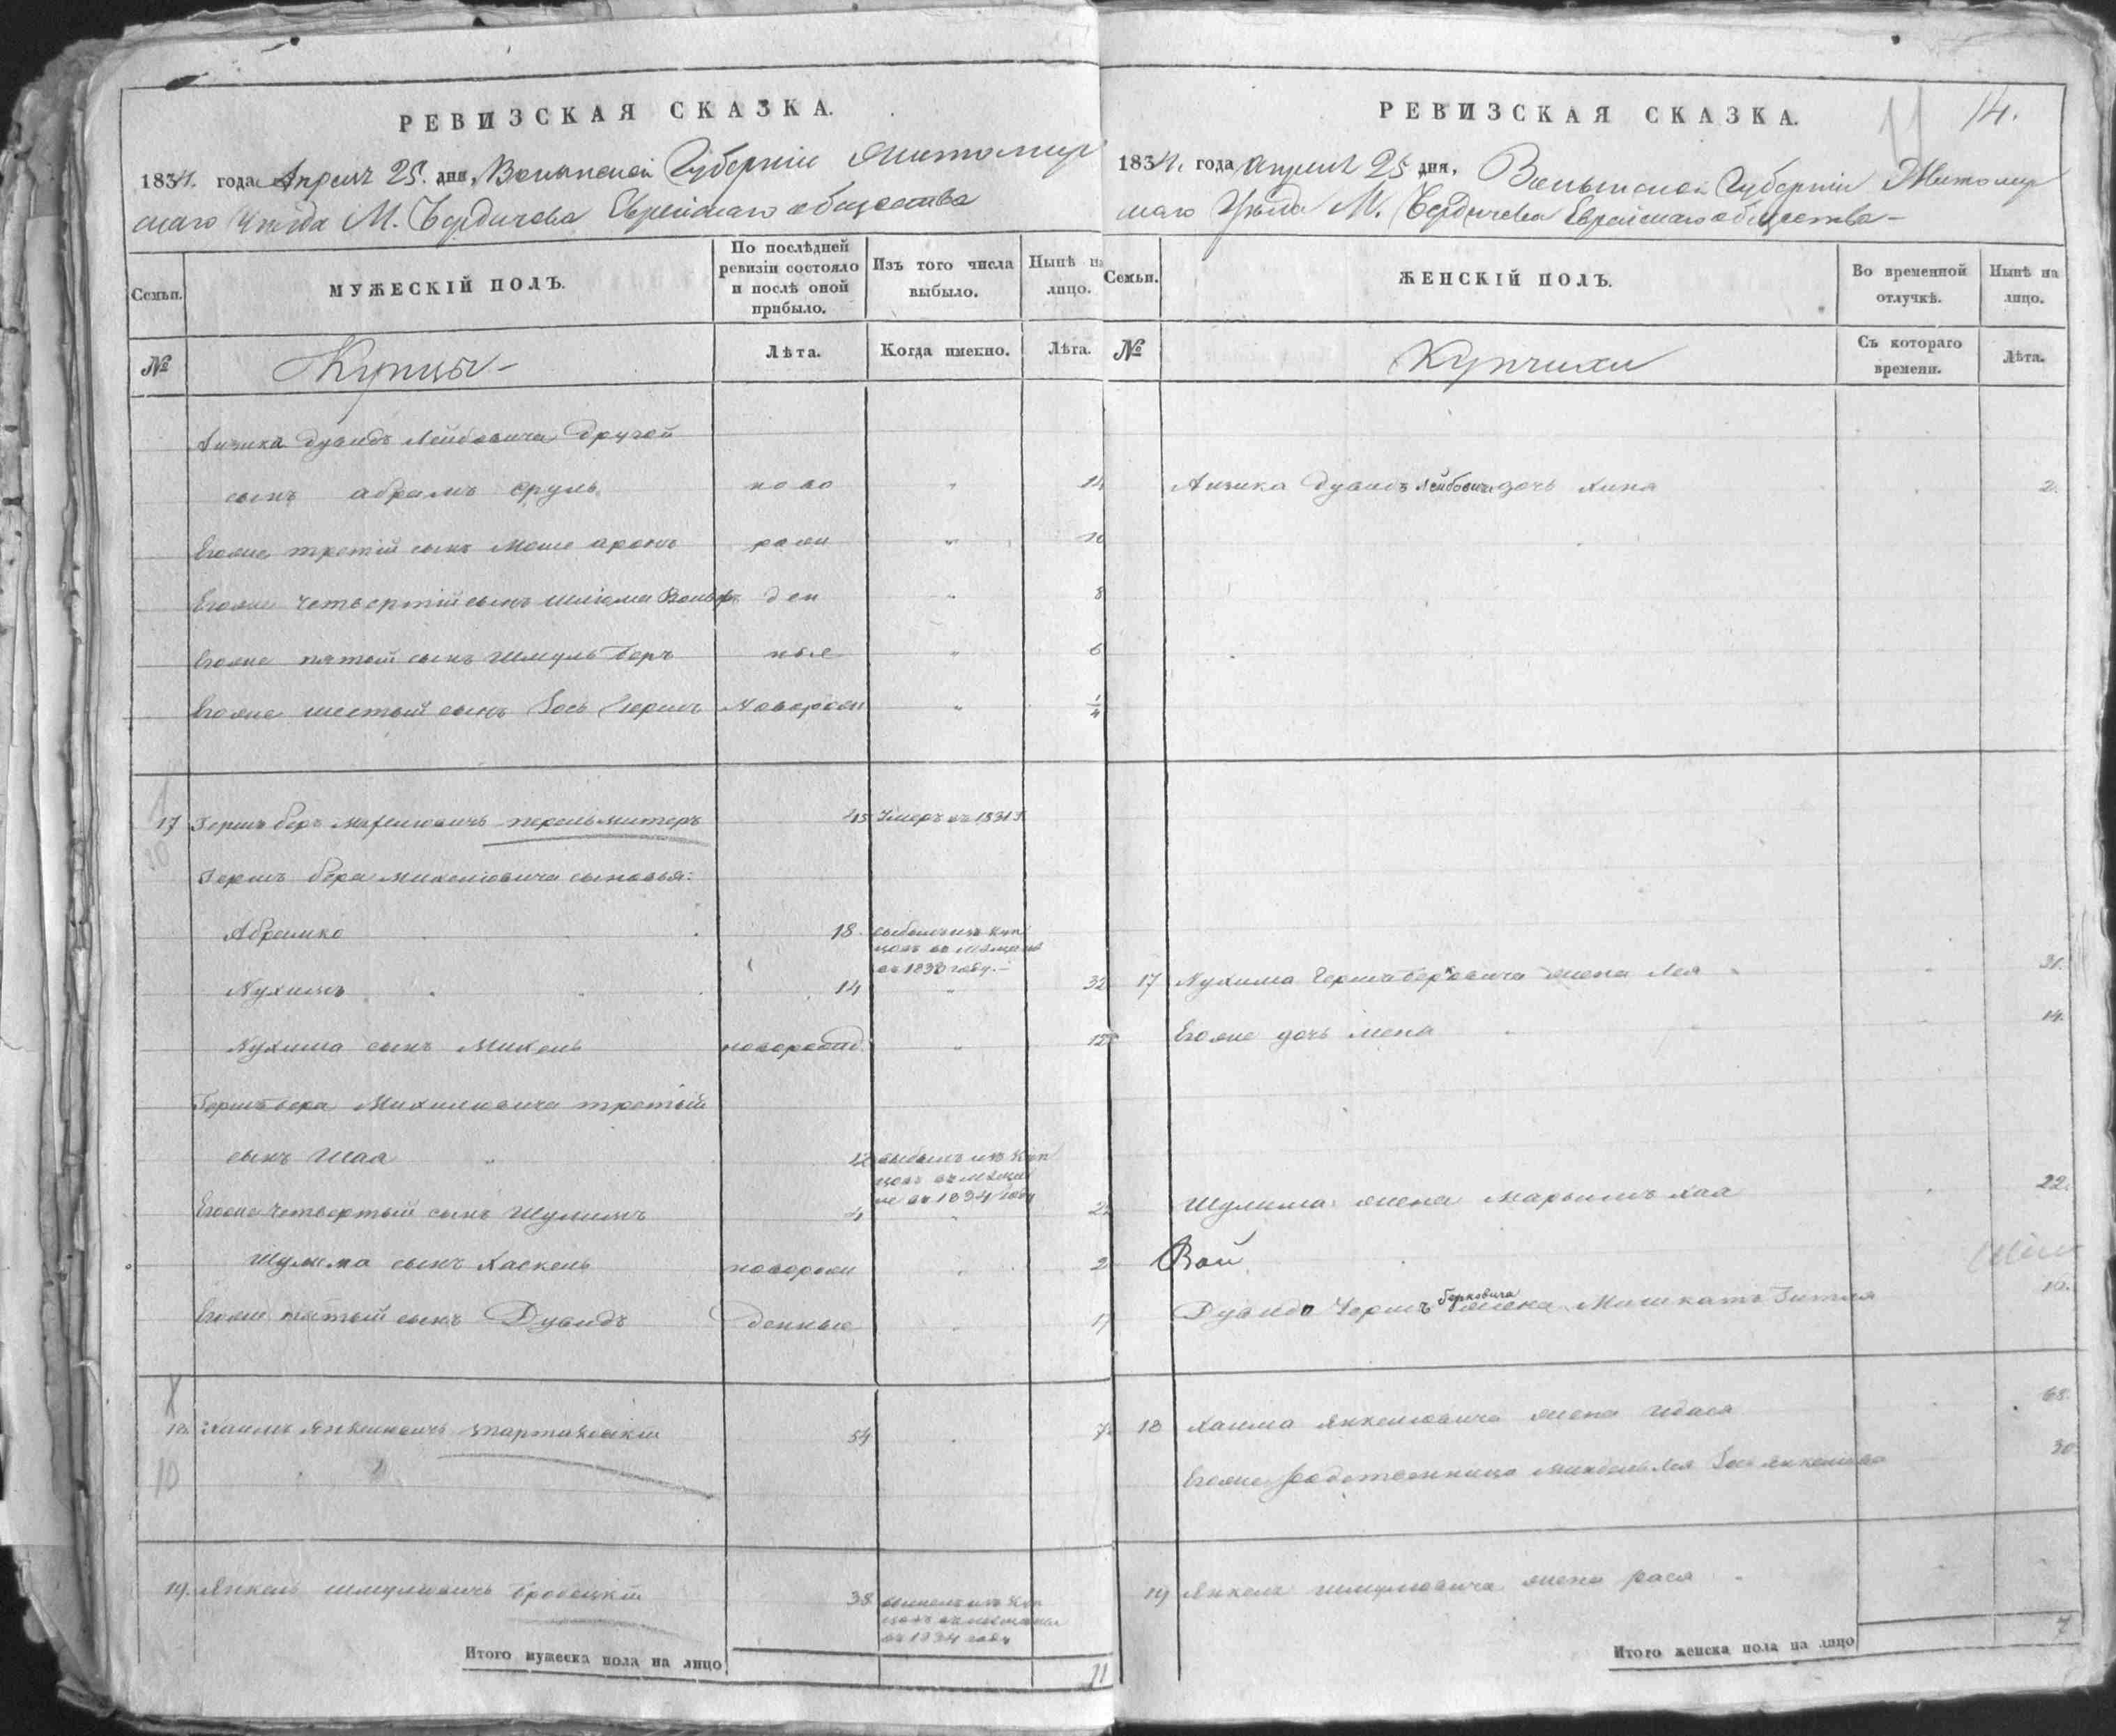 РЕВИЗСКАЯ СКАЗКА.
1834. года Апреля 25. дня, Волынской Губернии Житомир
скаго Уезда М. Бердичева Еврейскаго общества
Семьи.
МУЖЕСКІЙ ПОЛЪ.
По послѣдней ревизіи состояло и послѣ оной прибыло.
Изъ того числа выбыло.
Нынѣ на лицо.
№
Купцы
Лѣта.
Когда именно.
Лѣта.
Айзика Дувидъ Лейбовича другой
сынъ абрамъ сруль ново 14
Егоже третій сынъ Моше аронъ рожи 10
Егоже четвертій сынъ Шліома Вольф ден 8
Егоже пятый сынъ Шмуль беръ ные 6
Егоже шестый сынъ Іось Гершъ Новорож 1/4
17 Гершъ беръ Михелювичъ перельмитеръ 45 Умеръ въ 1831 г
Гершъ бера Михелювича сыновья:
Абрамко 18 выбылъ изъ куп
цовъ въ мещане
въ 1833 году.
Нухимъ 14 32
Нухима сынъ Михель новорожд. 12
Гершъ бера Михелювича третый
сынъ Шая 12 выбылъ изъ куп
цовъ въ мещa
не въ 1834 году
Егоже четвертый сынъ Шулимъ 4 22
Шулима сынъ Хаскель новорож 2
Егоже пятый сынъ Дувидъ денные 17
18. Хаимъ Янкелювичъ 54 7
10
19. Янкель Шмулювичъ бродецкій 38 вышелъ изъ куп
цовъ въ мещане
въ 1834 году
Итого мужеска пола на лицо 11
14.
РЕВИЗСКАЯ СКАЗКА.
1834. года Апреля 25 дня, Волынской Губерніи Житомир
скаго Уезда М. Бердичева Еврейскаго общества
Семьи.
ЖЕНСКІЙ ПОЛЪ.
Во временной отлучкѣ.
Нынѣ на лицо.
№
Купчихи
Съ котораго времени.
Лѣта.
Айзика Дувидъ Лейбовича дочь Хина 2.
17 Нухима Гершъ берковича жена Лея 31.
Егоже дочь 14.
Шулима жена Марьимъ Хая 22.
Дувида Гершъ Берковича жена Гитля
18 Хаима Янкелювича жена 68.
Егоже родственница Лея 30
19 Янкеля Шмулювича жена рася
Итого женска пола на лицо 7